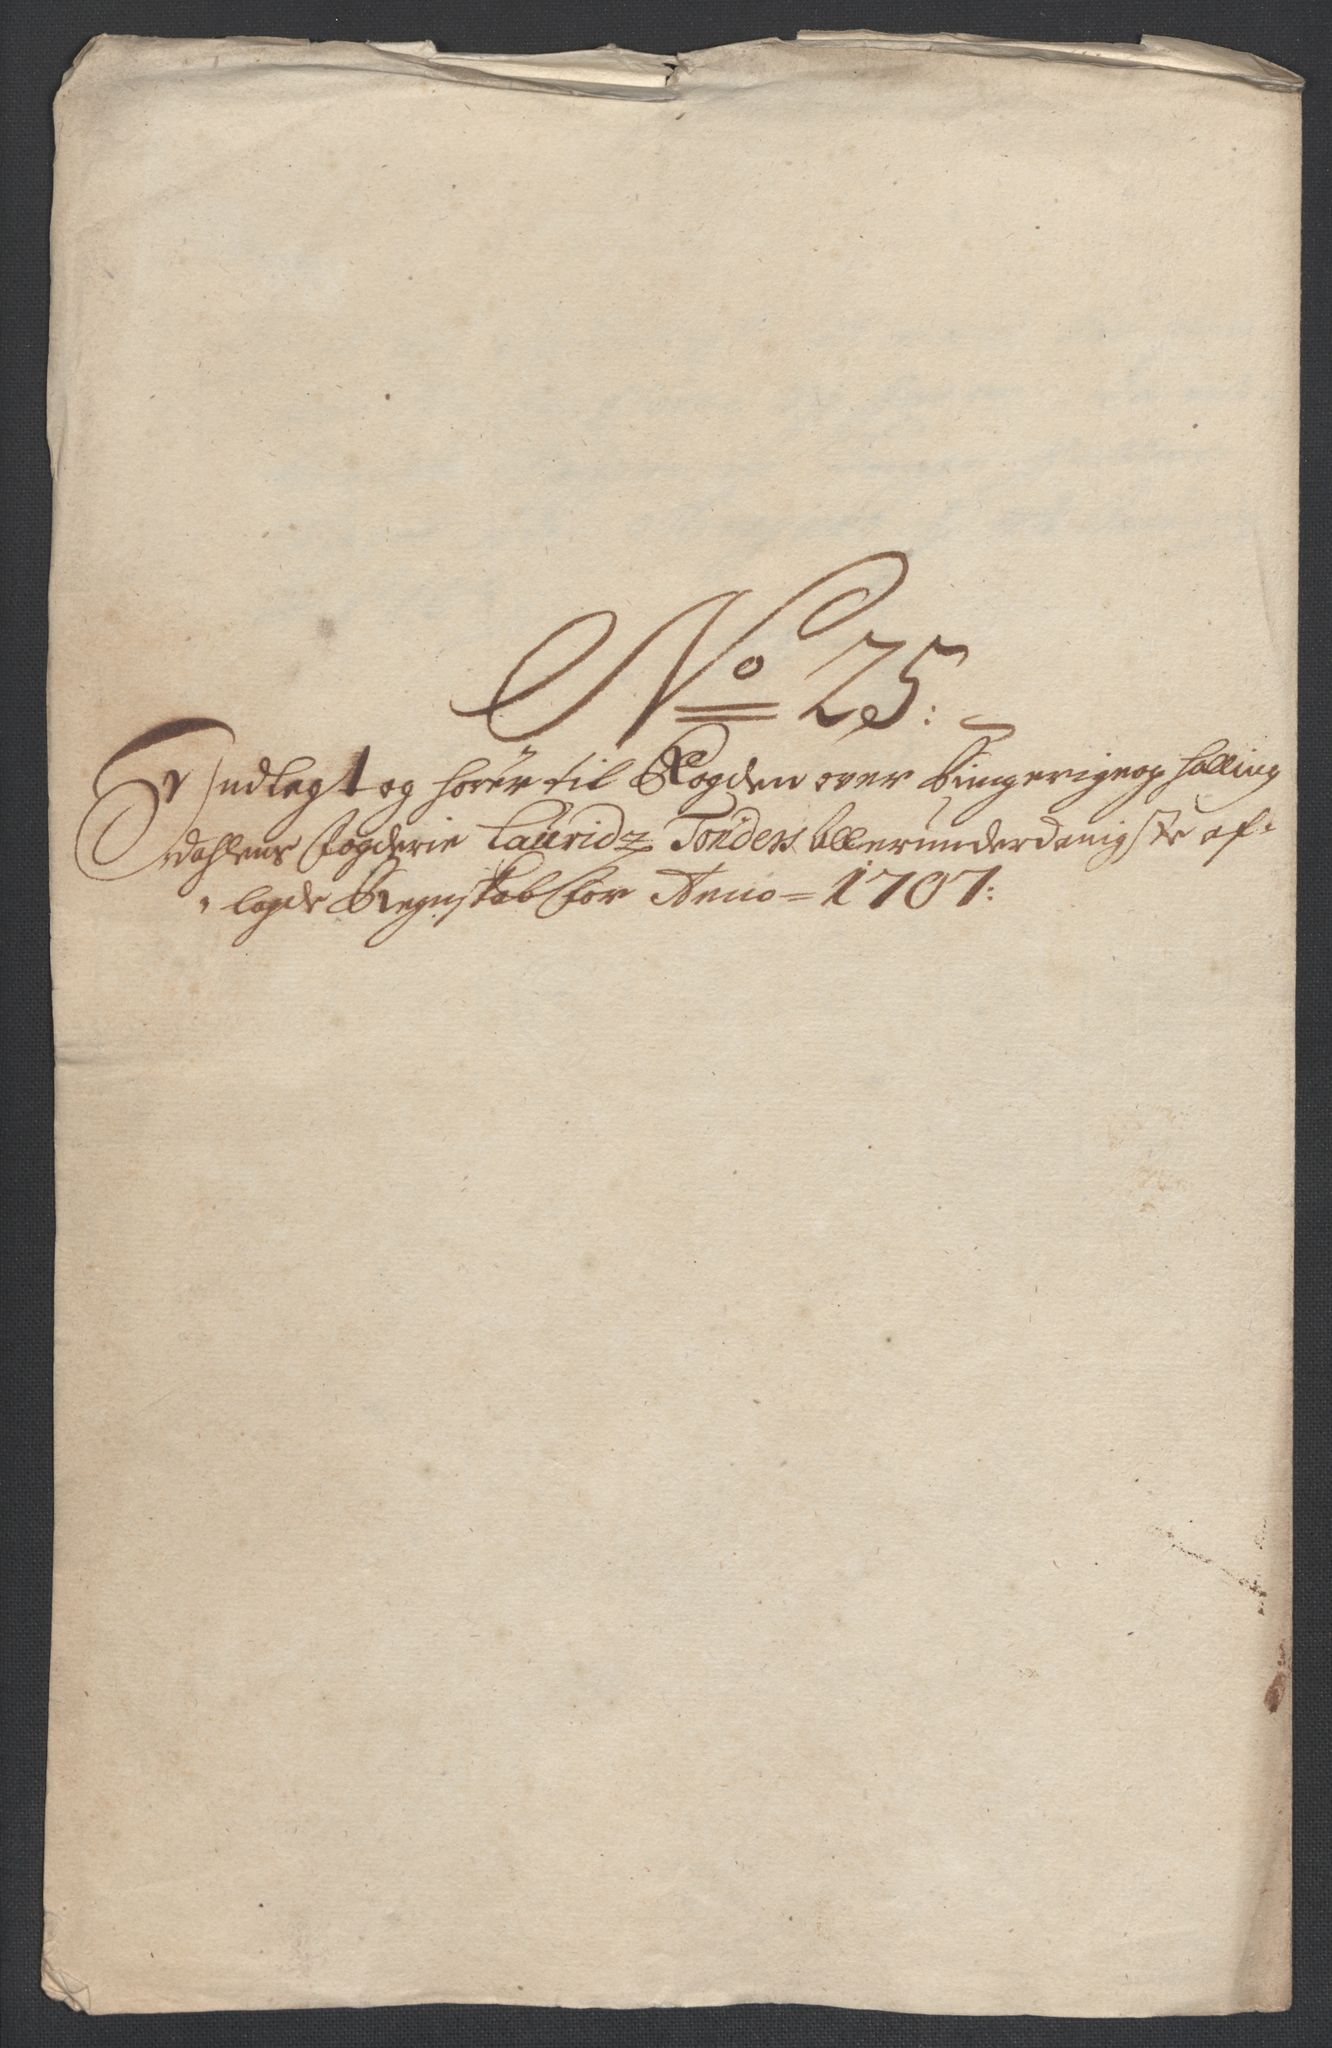 No 25:
Er Indlagt og hörer til Fogden over Ringerige og Halling
dahlens Fogderie Lauridz Tönders Allerunderdanigste af-
lagde Regnskab for Anno = 1707: